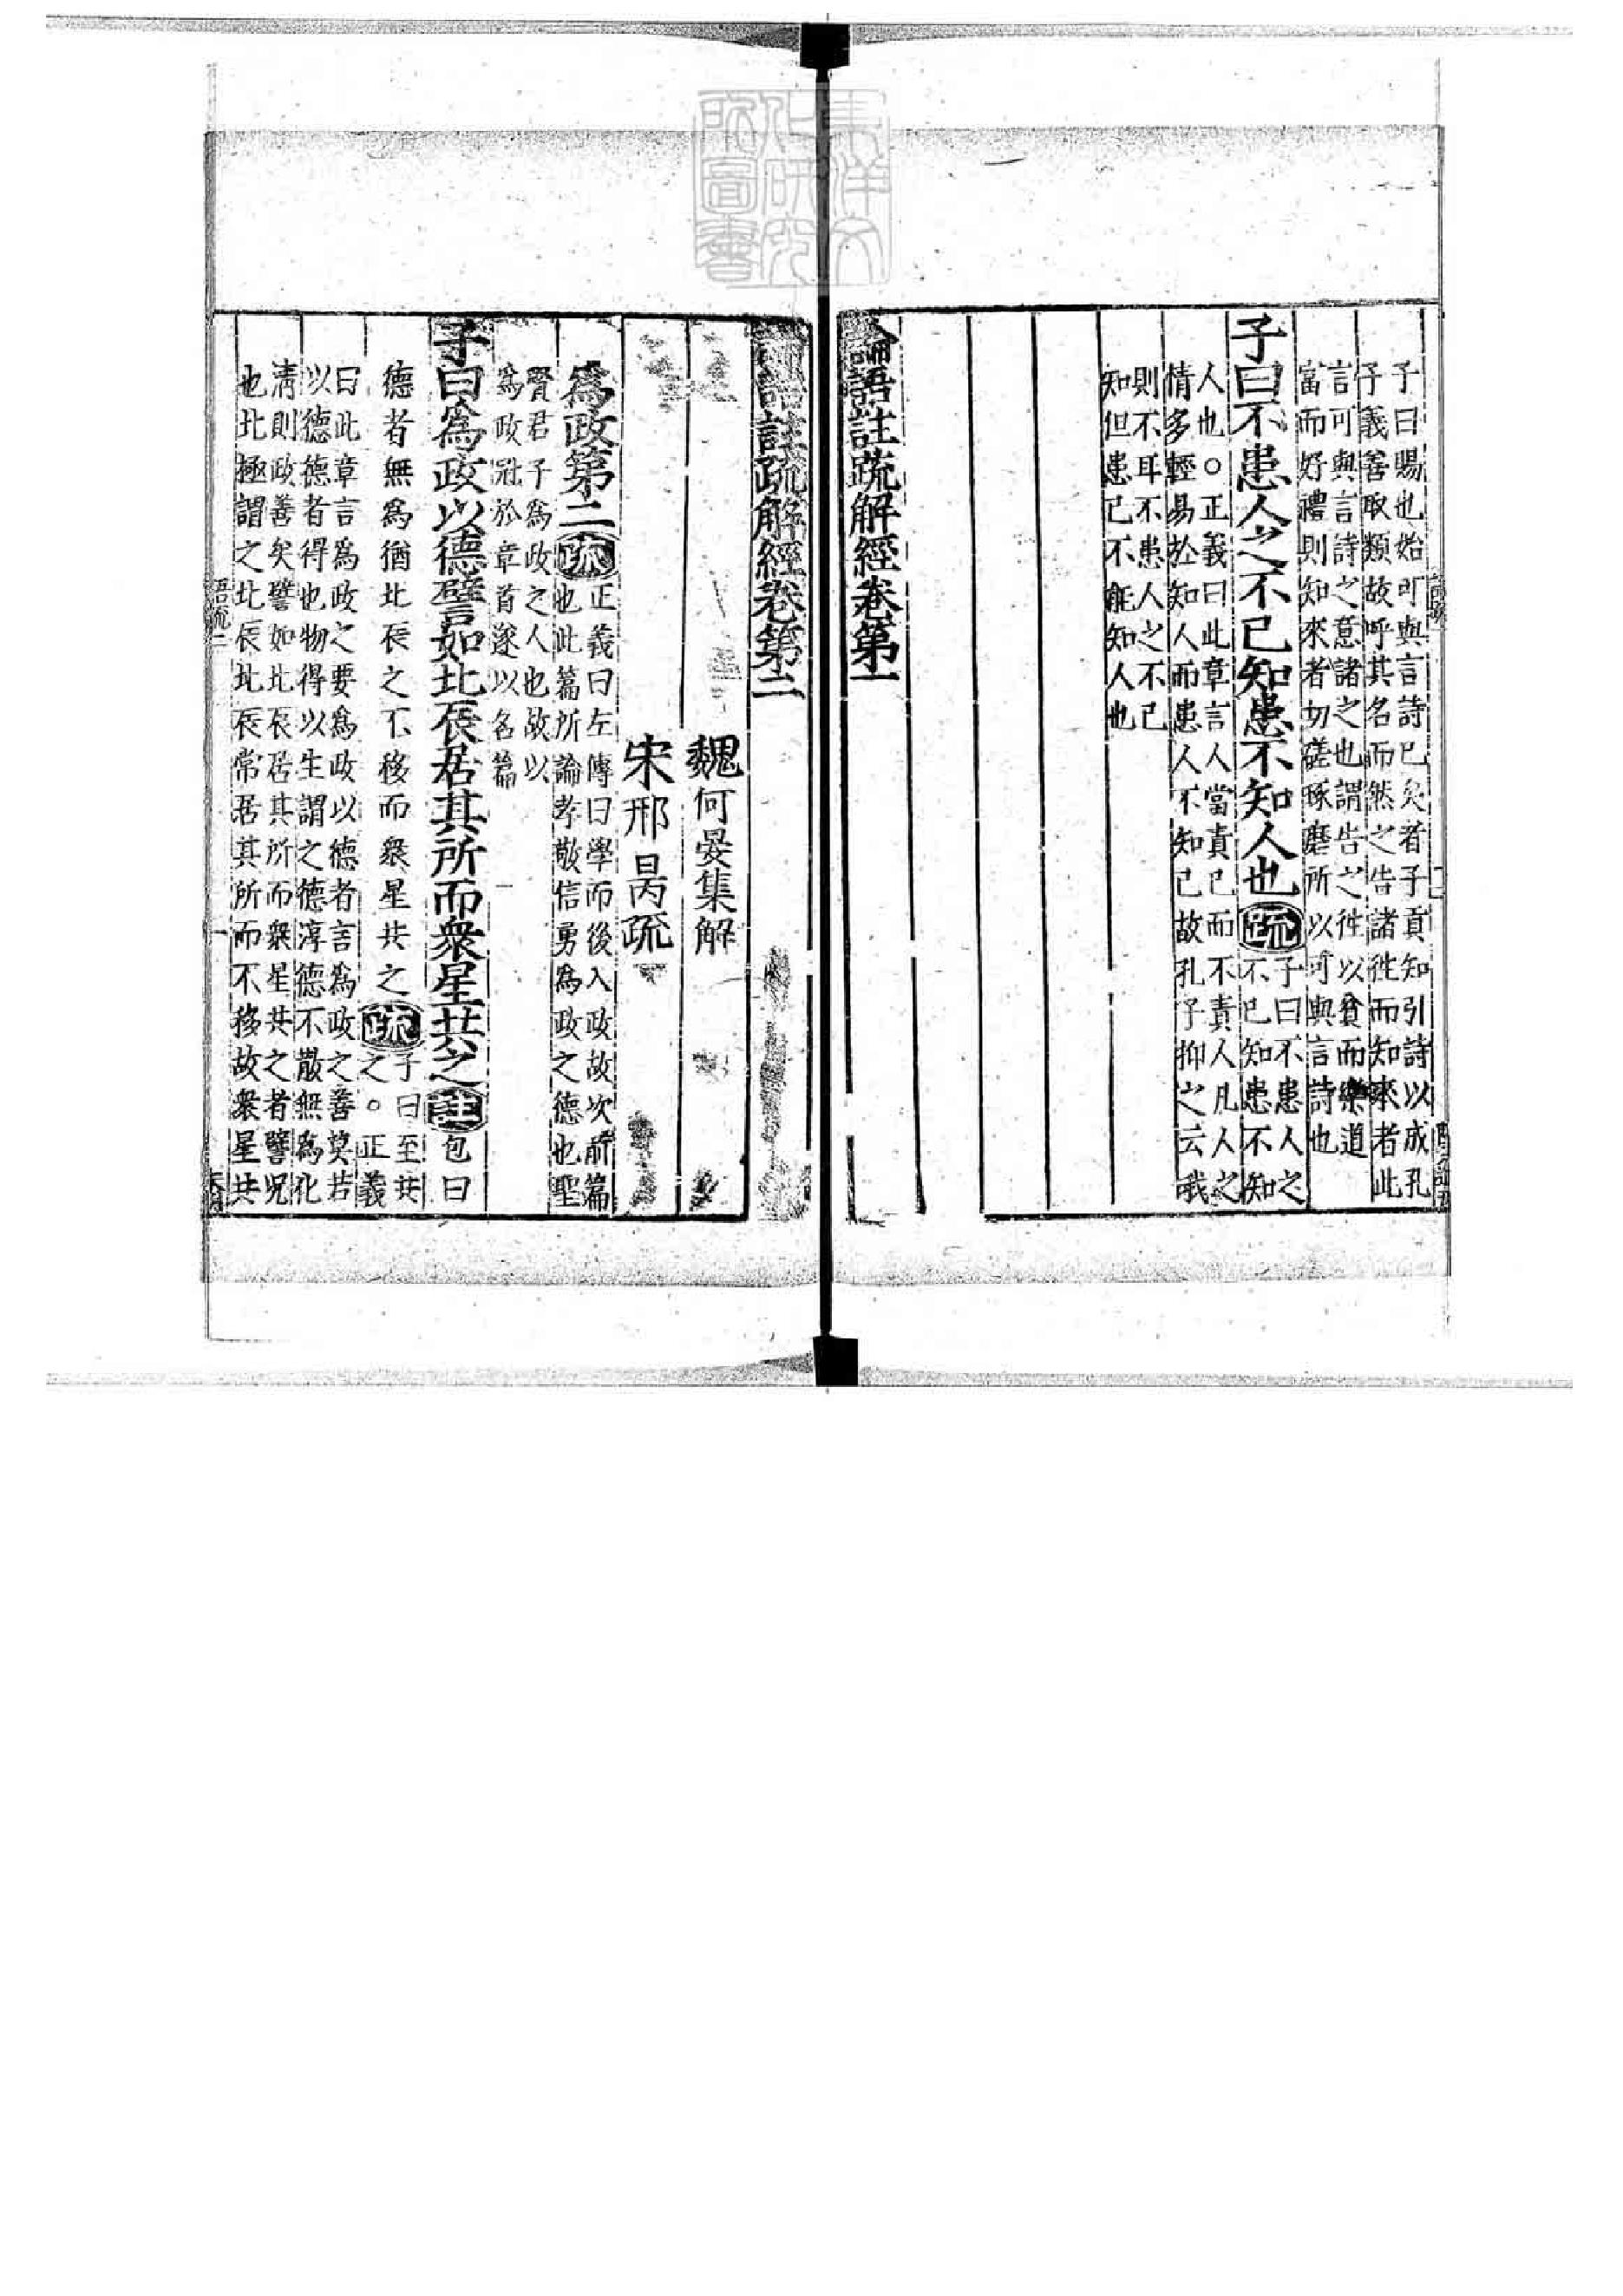 子曰賜也始可與言詩已矣者子貢知引詩以成孔
子義善取類故呼其名而然之告諸徃而知來者此
言可與言詩之意諸之也謂告之徃以貧而樂道
富而好禮則知來者切磋琢磨所以可與言詩也
子曰不患人之不已知患不知人也疏子曰不患人之
不已知患不知
人也。正義曰此章言人當責已而不責人凡人之
情多輕易於知人而患人不知已故孔子抑之云我
則不耳不患人之不已
知但患已不能知人也
論語註疏解經卷第一
論語註疏解經卷第二
魏何晏集解
宋邢昺疏
為政第二疏正義曰左傳曰學而後入政故次前篇
也此篇所論孝敬信勇為政之德也聖
賢君子為政之人也故以
為政冠於章首遂以名篇
子曰為政以德譬如北辰居其所而衆星共之註包曰
德者無為猶北辰之不移而衆星共之疏子曰至共
之。正義
曰此章言為政之要為政以德者言為政之善莫若
以德德者得也物得以生謂之德淳德不散無為化
清則政善矣譬如北辰居其所而衆星共之者譬况
也北極謂之北辰北辰常居其所而不移故衆星共
語疏二
一
東洋文
化研究
所圖書